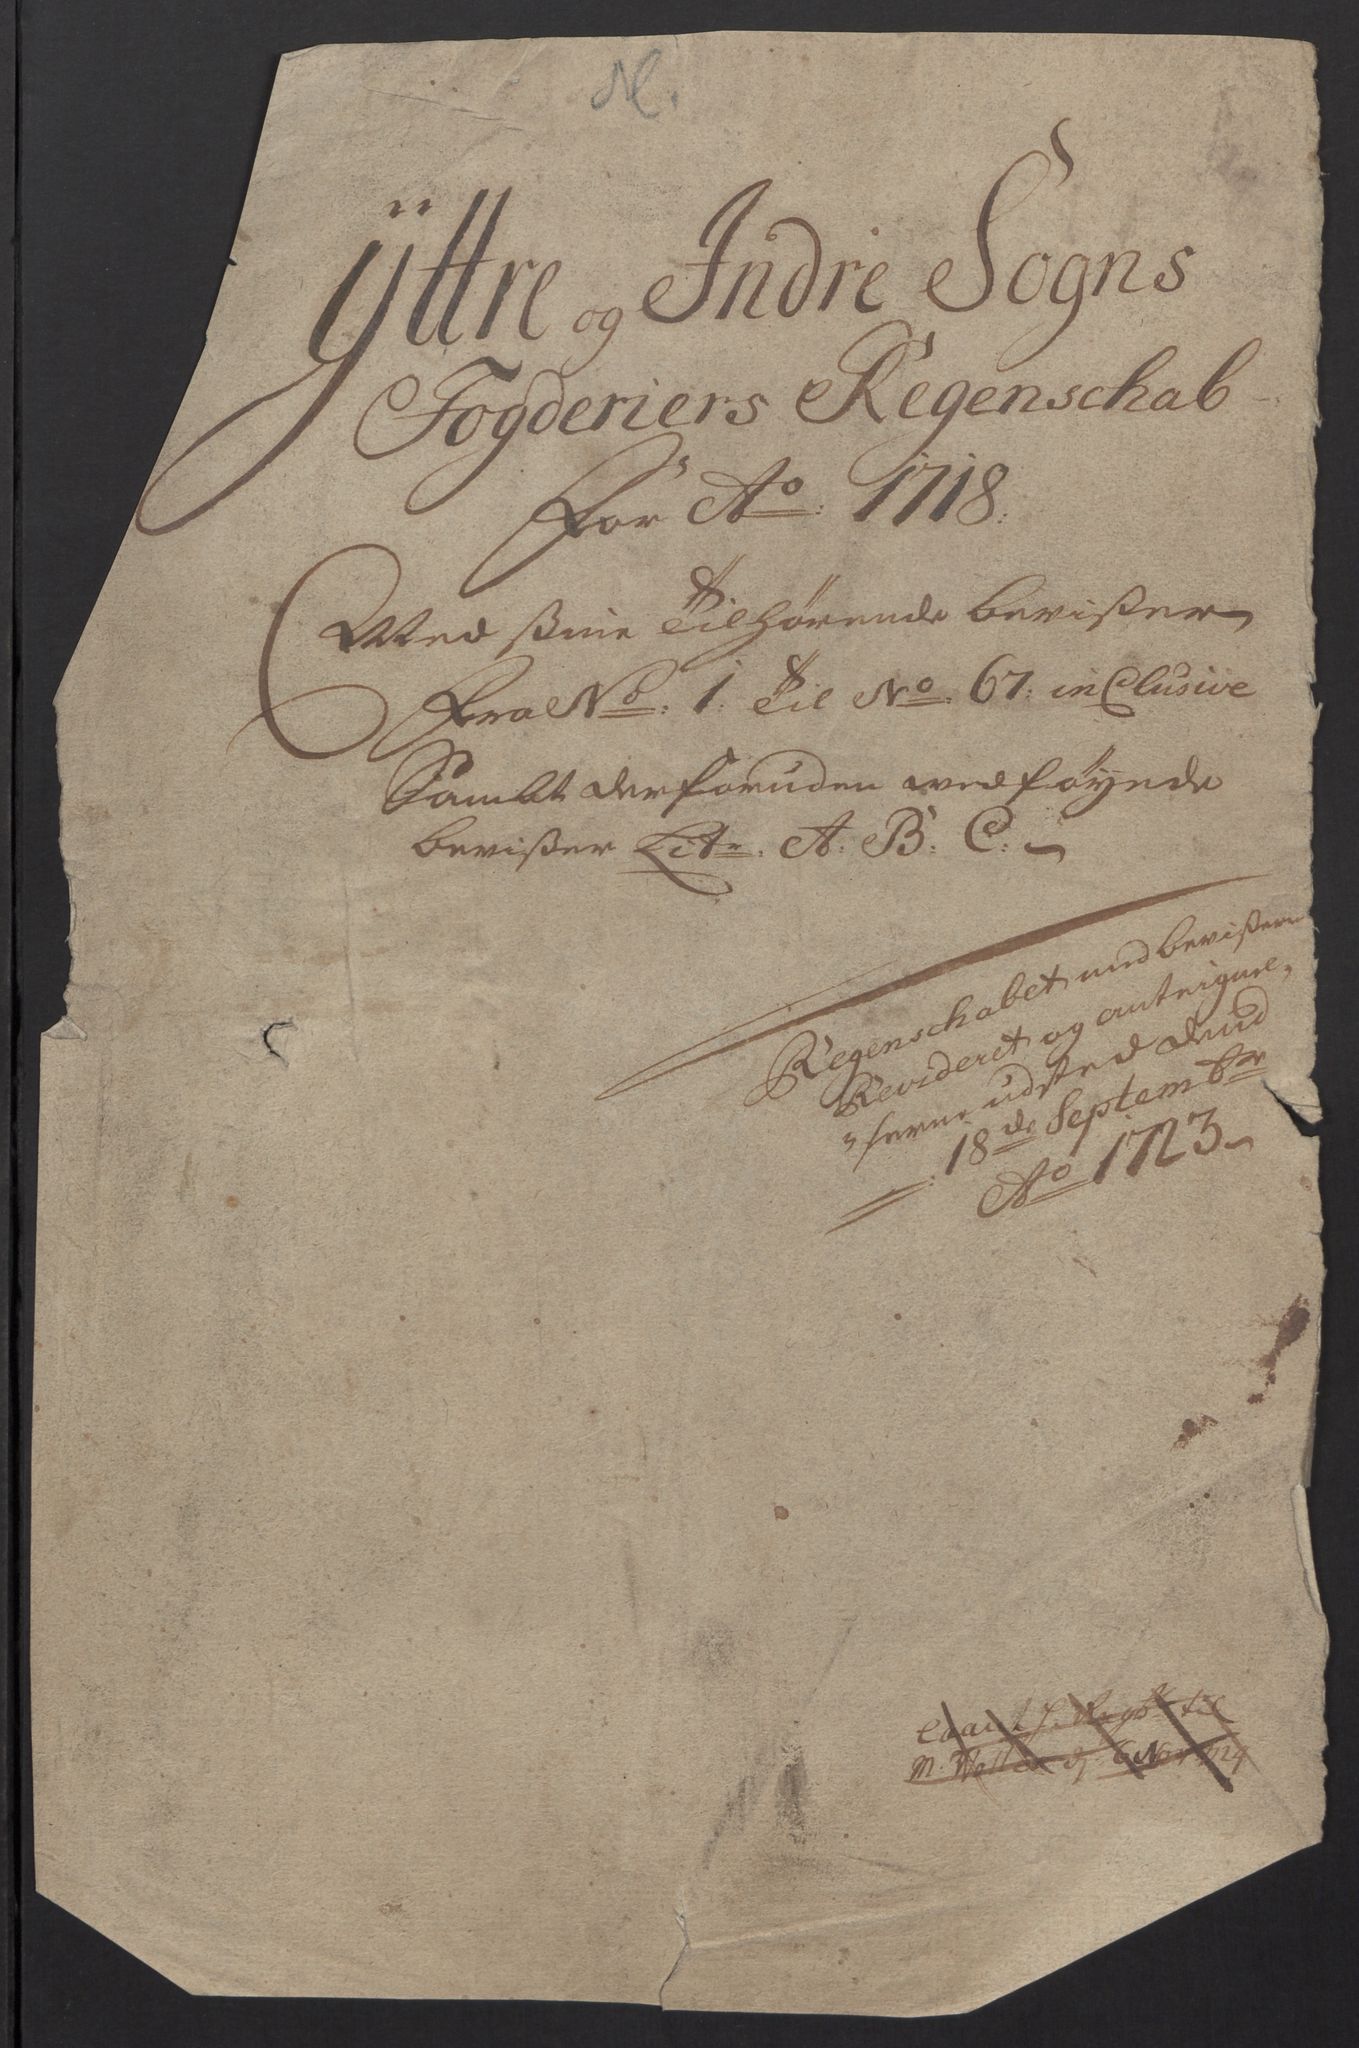 Ÿttre og Indre Sogns
Fogderiers Regenschab
For Ao. 1718.
Med ßine Tilhørende bevißer
Fra No. 1. Til No. 67. inClusive
Sambt derforuden vedføyede
bevißer Litr. A. B. C.
Regenschabet med bevißerne
Revideret og anteignel,
serne udsted dend
18de Septembr
Ao 1723
til